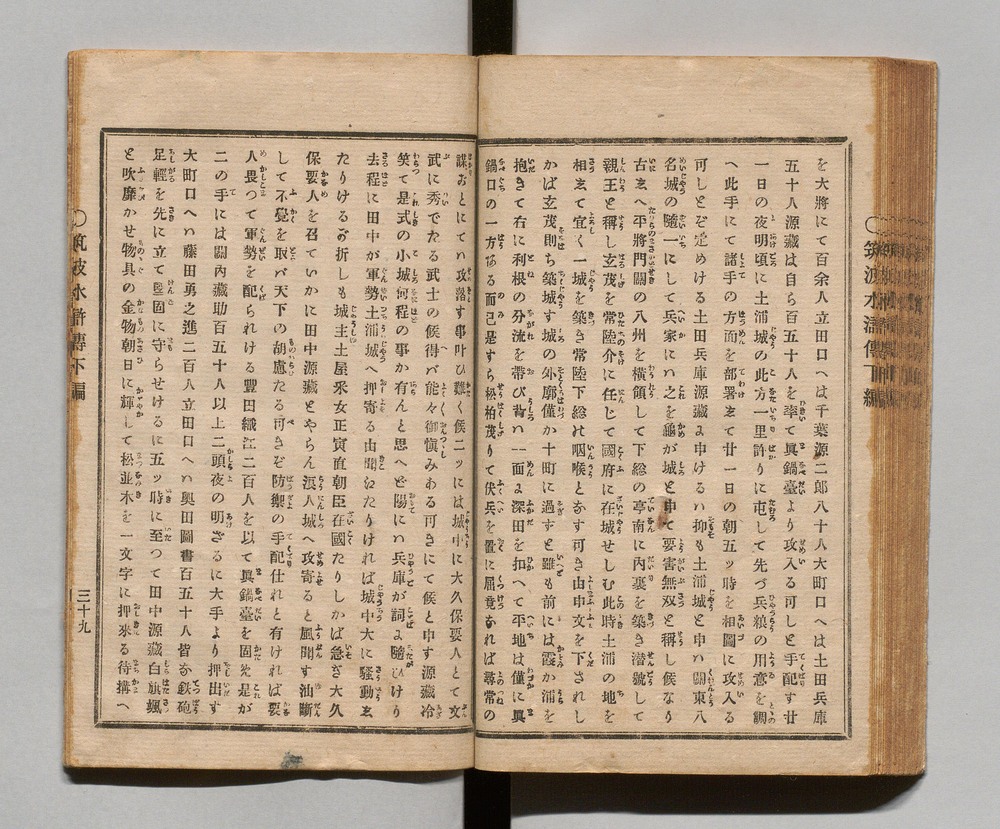 を大將にて百余人立田口へは千葉源二郎八十八大町口へは土田兵庫
五十八源藏は自ら百五十八を率て眞鍋臺より攻入る可しと手配す廿
一日の夜明頃に土浦城の此方一里許りに屯して先づ兵粮の用意を調
へ此手にて諸手の方面を部署して廿一日の朝五ッ時を相圖に攻入る
可しとぞ定めける土田兵庫源藏に申けるハ抑も土浦城と申ハ關東八
名城の隨一にして兵家にハ之を龜が城と申て要害無双と稱し候なり
古へ平將門關の八州を橫領して下總の亭南に內裏を築き潜號して
親王と稱し玄茂を常陸介に任じて國府に在城せしむ此時土浦の地を
相て宜く一城を築き常陸下總の咽喉となす可き由申文を下されし
かば玄茂則ち築城す城の外廓僅か十町に過ずと雖も前には霞か浦を
抱きて右に利根の分流を帶び背ハ一面に深田を扣へて平地は僅に眞
鍋口の一方なる而己是すら松柏茂りて伏兵を置に屈竟なれば尋常の
謀おとにてハ攻落す事叶ひ難く候二ッには城中に大久保要人とて文
武に秀でたる武士の候得バ能々御愼みある可きにて候と申す源藏冷
笑て是式の小城何程の事か有んと思へど陽にハ兵庫が詞に隨ひけり
去程に田中が軍勢土浦城へ押寄る由聞えたりければ城中大に騷動し
たりける折しも城主土屋釆女正寅直朝臣在國たりしかば急ぎ大久
保要人を召ていかに田中源藏とやらん浪人城へ攻寄ると風聞す油斷
して不覺を取バ天下の胡慮たる可きぞ防禦の手配仕れと有ければ要
人畏つて軍勢を配られける豐田織江二百人を以て眞鍋臺を固む是が
二の手には關內藏助百五十八以上二頭夜の明ざるに大手より押出す
大町口へハ藤田勇之進二百人立田口へハ奧田圖書百五十八皆な銕砲
足輕を先に立て堅固に守らせけるに五ッ時に至つて田中源藏白旗颯
と吹靡かせ物具の金物朝日に輝して松並木を一文字に押來る待搆へ
〇筑波水滸傳下編
三十九
〇筑波水滸傳下編